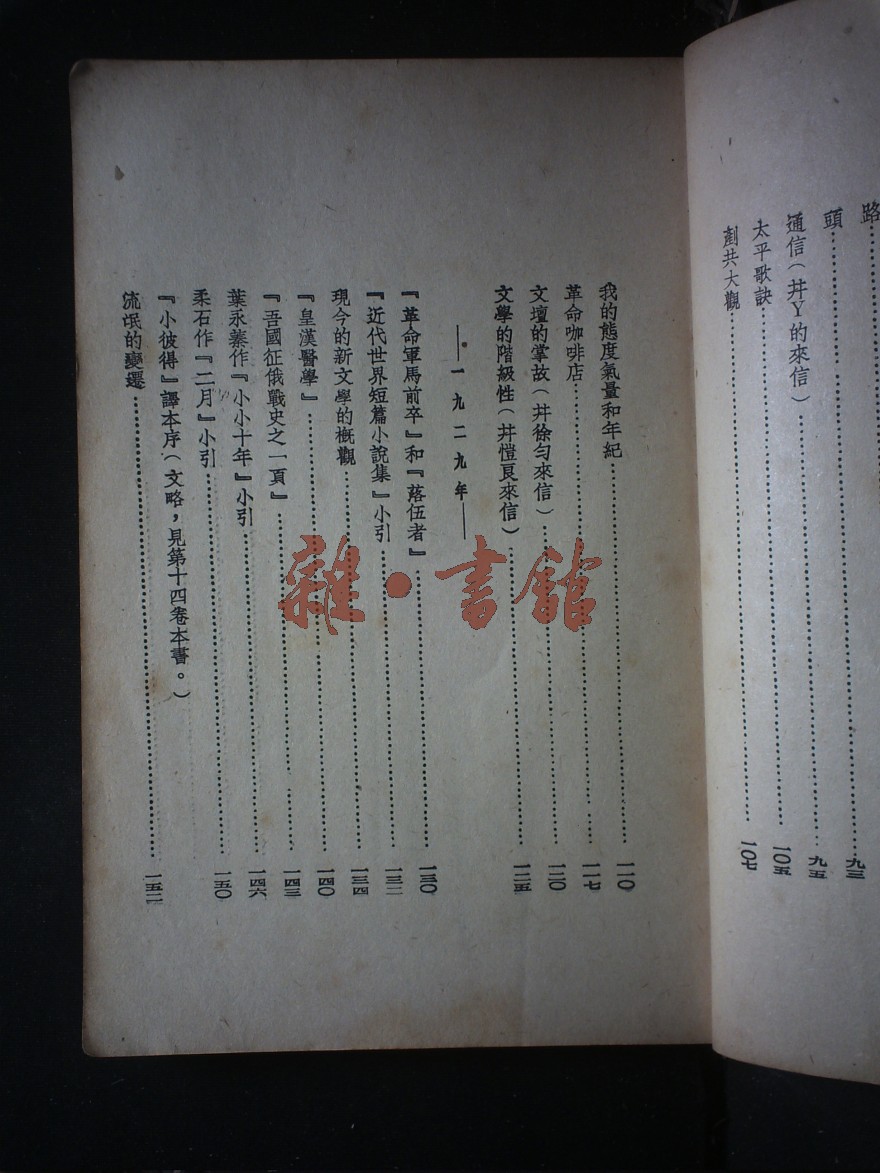 路……
頭……九三
通信（幷Y的來信）……九五
太平歌訣……一〇五
剷共大觀……一〇七
我的態度氣量和年紀……一一〇
革命咖啡店……一一七
文壇的掌故（幷徐勻來信）……一二〇
文學的階級性（幷愷良來信）……一二五
——一九二九年——
『革命軍馬前卒』和『落伍者』……一三〇
『近代世界短篇小說集』小引……一三二
現今的新文學的概觀……一三四
『皇漢醫學』……一四〇
『吾國征俄戰史之一頁』……一四三
葉永蓁作『小小十年』小引……一四六
柔石作『二月』小引……一五〇
『小彼得』譯本序（文略，見第十四卷本書。）
流氓的變遷……一五二
雜·書館